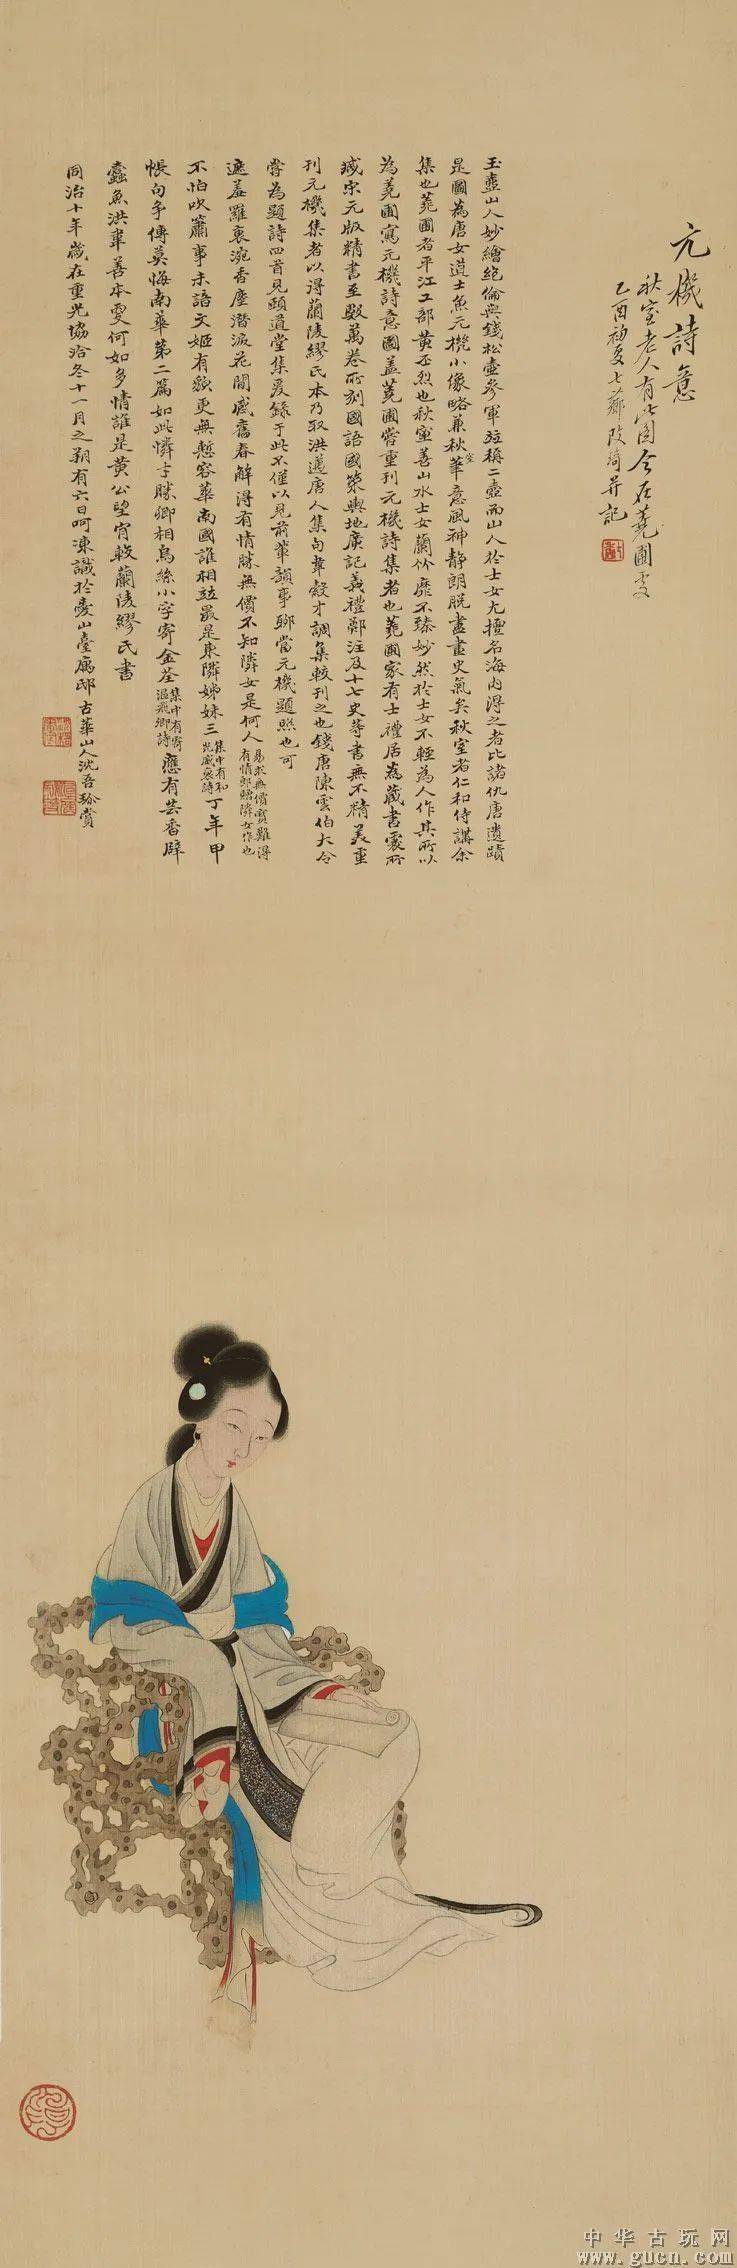 元機詩意
秋室老人有此圖今在蕘圃處
乙酉初夏七薌改琦并記
玉壺山人妙繪絕倫與錢松壺參軍並稱二壺而山人於士女尤擅名海內得之者比諸仇唐遺蹟
是圖為唐女道士魚元機小像略兼秋室華意風神靜朗脫盡畫史氣矣秋室者仁和侍講余
集也蕘圃者平江工部黃丕烈也秋室善山水士女蘭竹靡不臻妙然於士女不輕為人作其所以
為蕘圃寫元機詩意圖蓋蕘圃嘗重刊元機詩集者也蕘圃家有士禮居為藏書處所
臧宋元版精書至數萬卷所刻國語國策輿地廣記義禮鄭注及十七史等書無不精美重
刊元機集者以得蘭陵繆氏本乃取洪邁唐人集句韋縠才調集較刊之也錢唐陳雲伯大令
嘗為題詩四首見頤道堂集爰錄于此不僅以見前輩韻事聊當元機題照也可
遮羞羅裹涴香塵潛淚花間感舊春解得有情勝無價不知隣女是何人易求無價寶難得有情郎贈隣女作也
不怕吹簫事未諳文姬有嶽更無慙容華南國誰相竝最是東隣姊妹三集中有和光威裒詩丁年甲
帳句争傳莫悔南華第二篇如此憐才勝卿相烏絲小字寄金荃集中有寄溫飛卿詩應有芸香辟
蠹魚洪韋善本更何如多情誰是黃公望肯較蘭陵繆氏書
同治十年歲在重光協洽冬十一月之朔有六日呵凍識於愛山臺寓邸古華山人沈吾珍賞
中华古玩网
www.gucn.com